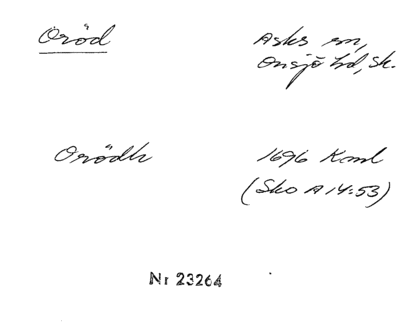 Oröd
Asks sn,
Onsjö hd, Sk.
Orödh
1696 Kml
(Sko A 14:53)
Nr 23264